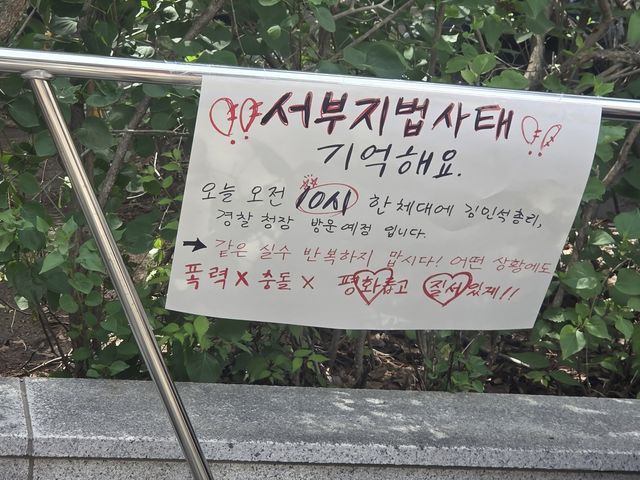 !! 서부지법사태 !!
기억해요.
오늘 오전 10시 한체대에 김민석총리,
경찰청장 방문예정 입니다.
→ 같은 실수 반복하지 맙시다! 어떤 상황에도
폭력 X 충돌 X 평화롭고 질서있게!!